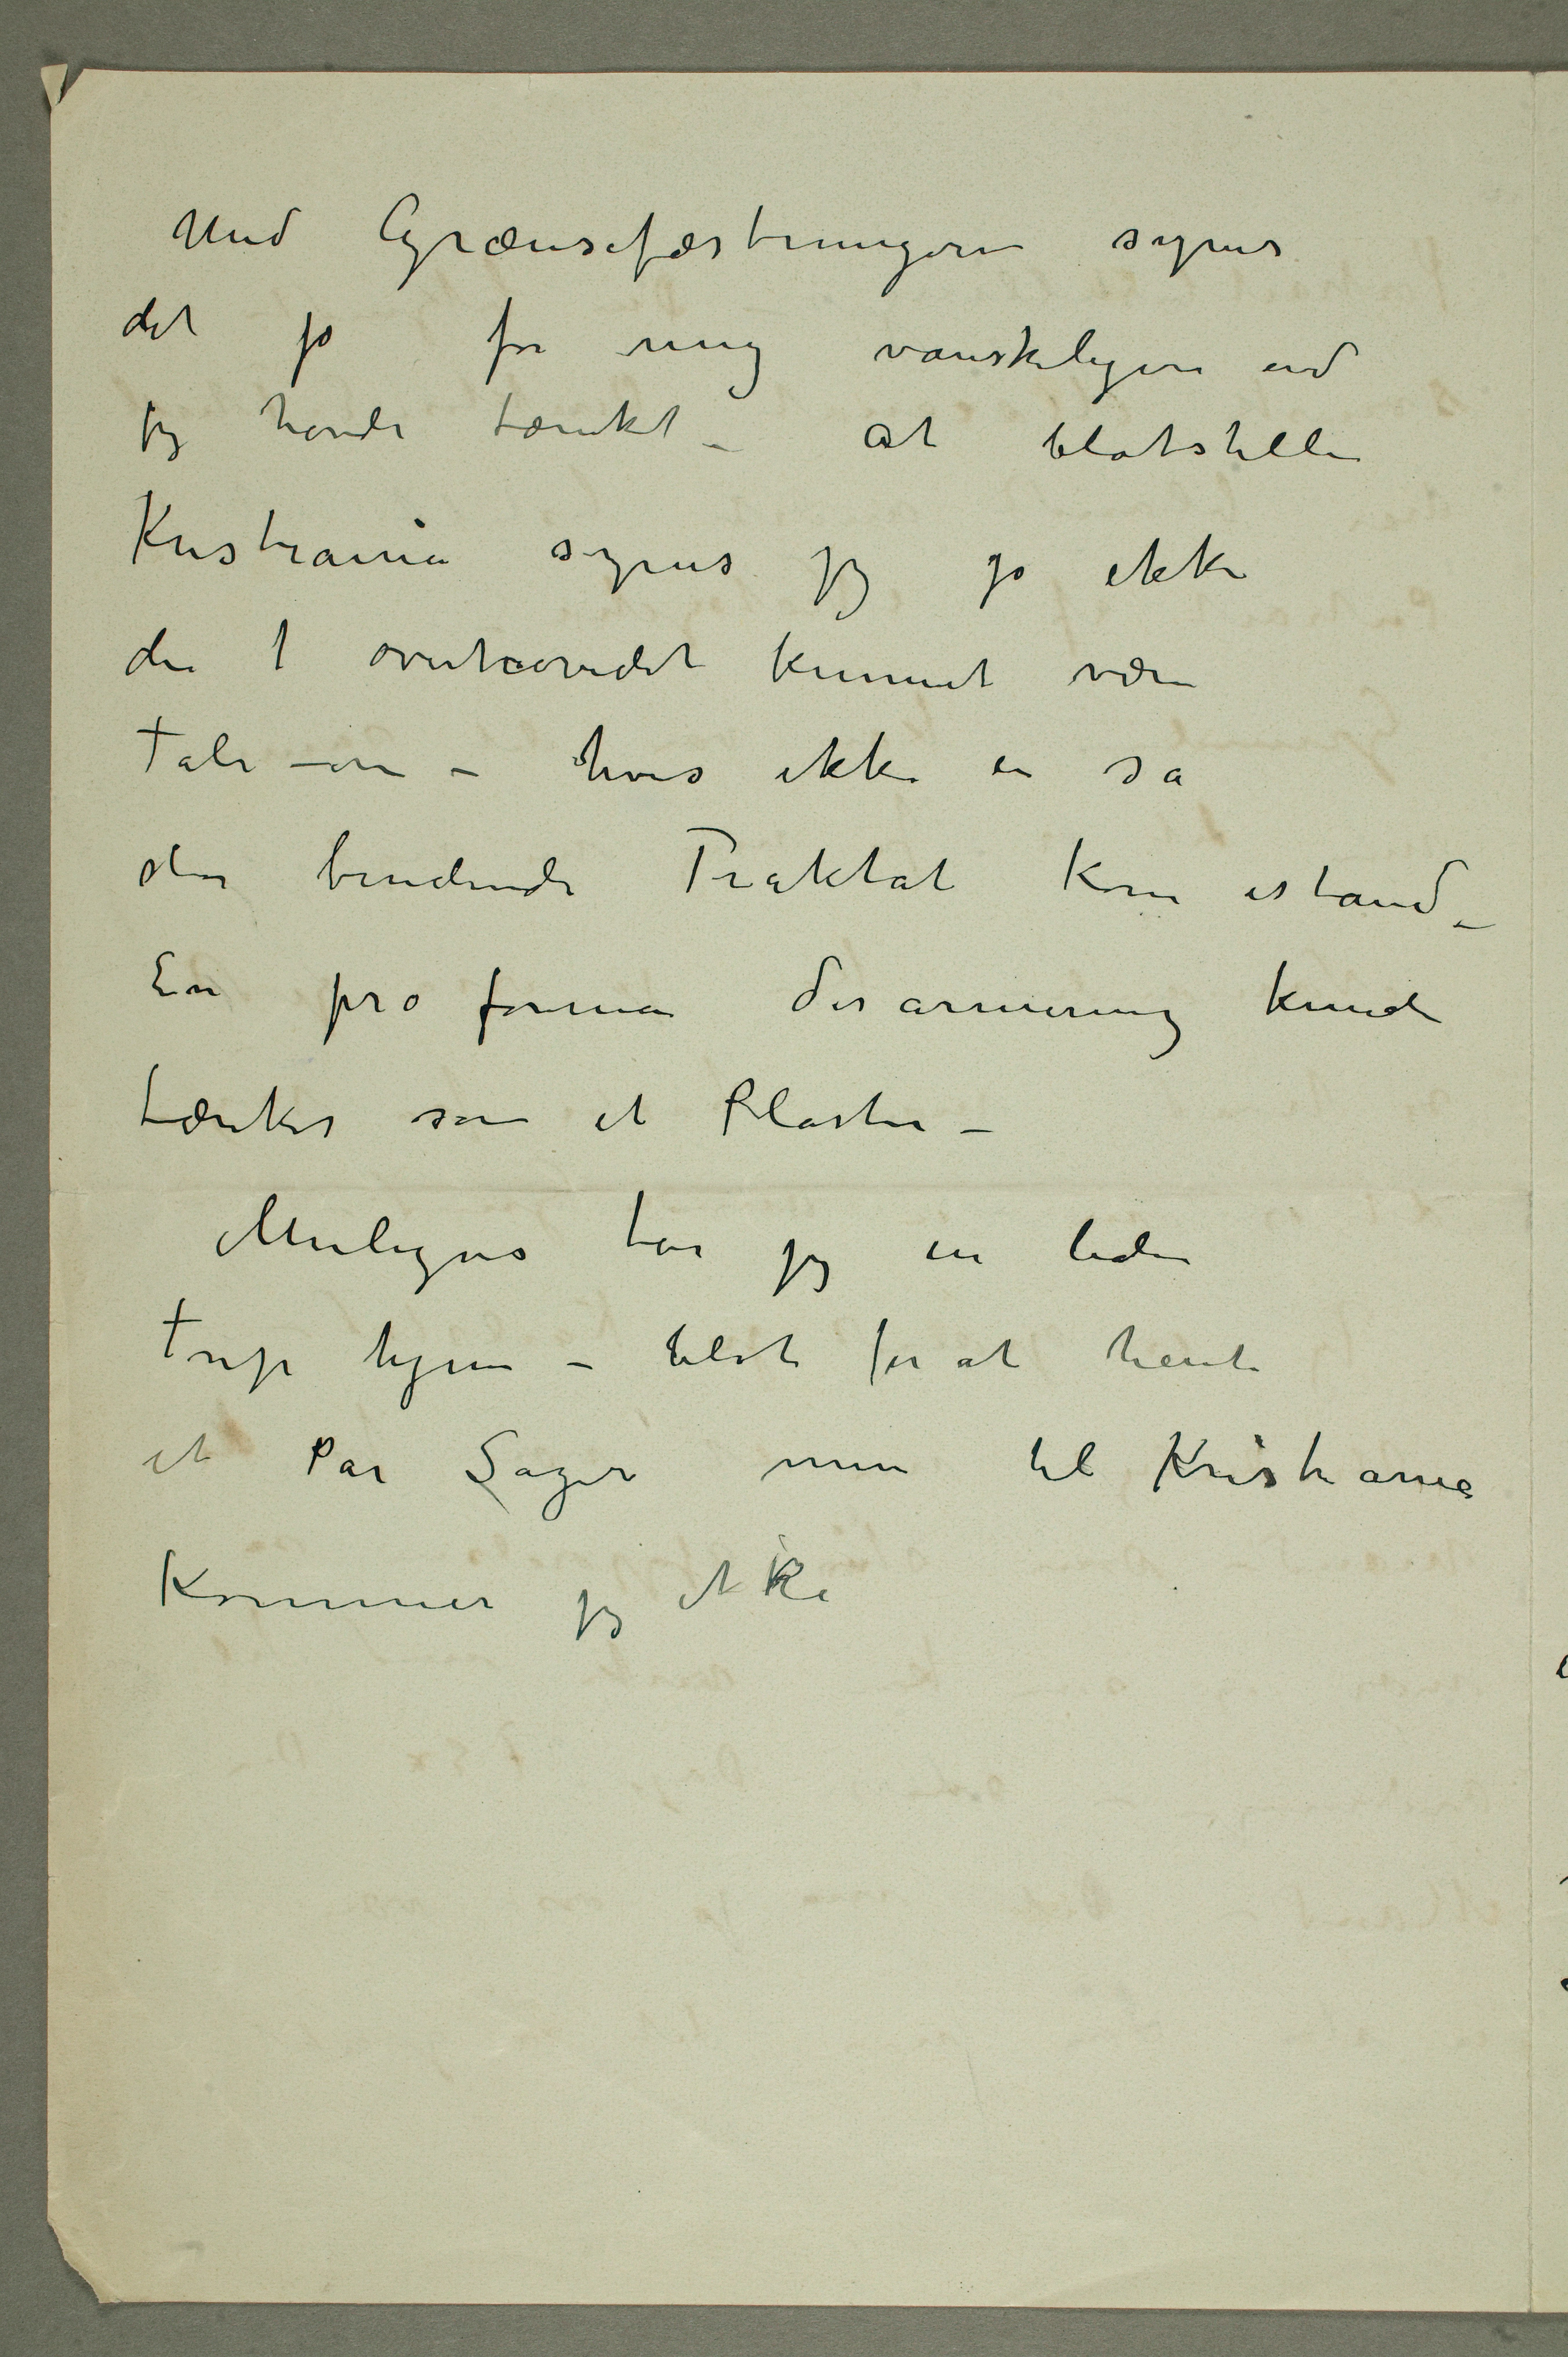 Med Grænsefæstningerne synes
det jo for mig vanskeligere end
jeg havde tænkt – at blotstille
Kristiania synes jeg jo ikke
der overhovedet kunnet være
Tale om – hvis ikke en så
stor bindende Traktat kom istand –
En pro forma desarmering kunde
tænkes som et Plaster –
Muligvis tar jeg en liden
Trip hjem – blot for at hente
et Par Sager men til Kristiania
kommer jeg ikke